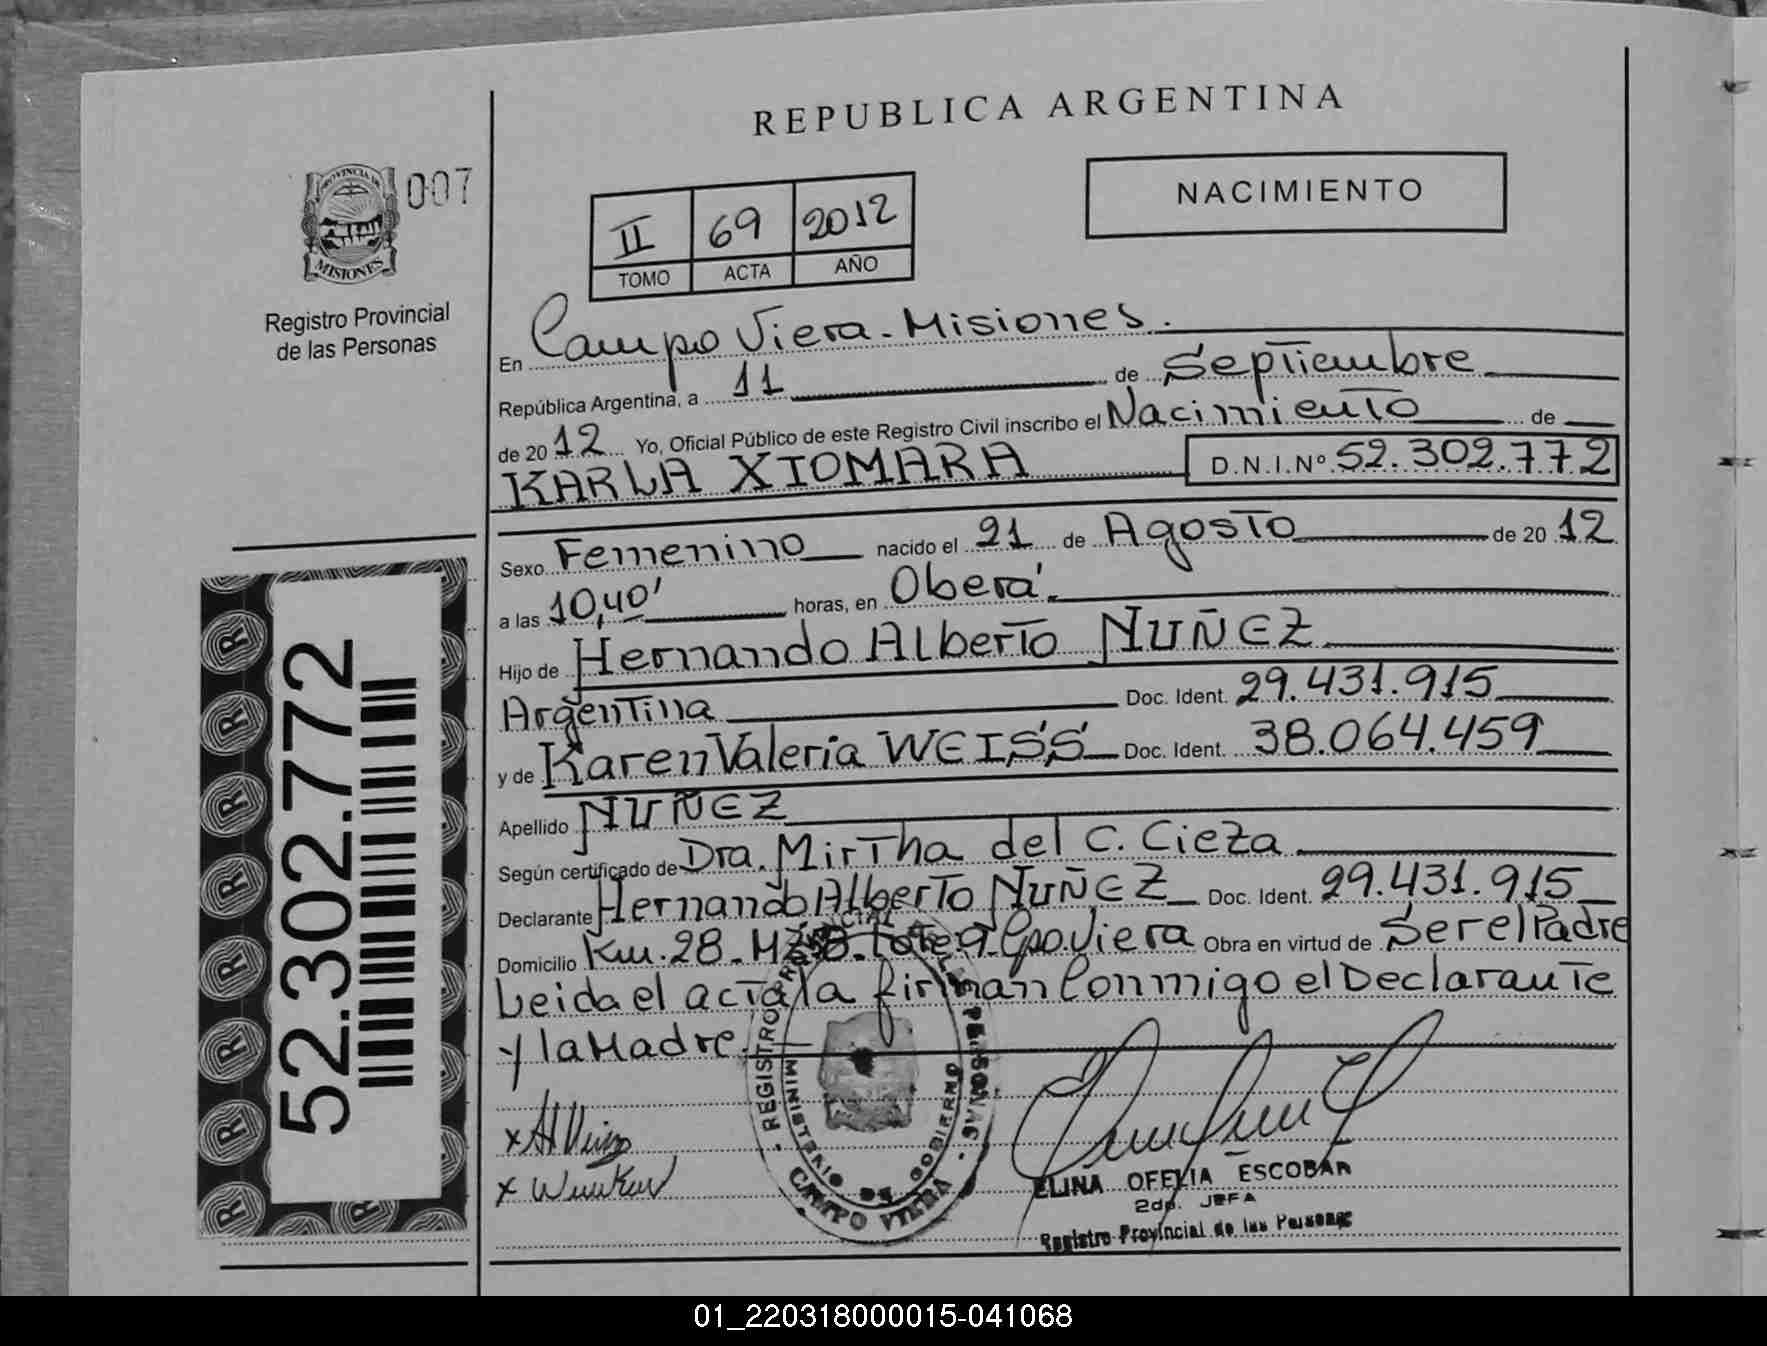 REPUBLICA ARGENTINA
PROVINCIA DE
MISIONES
007
Registro Provincial
de las Personas
II 69 2012
TOMO ACTA AÑO
NACIMIENTO
En Campo Viera - Misiones.
República Argentina, a 11 de Septiembre
de 20 12 Yo, Oficial Público de este Registro Civil inscribo el Nacimiento de
KARLA XIOMARA D.N.I.Nº 52.302.772
Sexo Femenino nacido el 21 de Agosto de 20 12
a las 10,40' horas, en Oberá.
Hijo de Hernando Alberto NUÑEZ
Argentina Doc. Ident. 29.431.915
y de Karen Valeria WEISS Doc. Ident. 38.064.459
Apellido NUÑEZ
Según certificado de Dra. Mirtha del C. Cieza
Declarante Hernando Alberto NUÑEZ Doc. Ident. 29.431.915
Domicilio Km. 28 - Mz B. Lote 9. Cpo. Viera Obra en virtud de Ser el Padre
Leida el acta la firman Conmigo el Declarante
y la Madre.
REGISTRO PROVINCIAL DE LAS PERSONAS
MINISTERIO DE GOBIERNO
CAMPO VIERA
ELINA OFELIA ESCOBAR
2da. JEFA
Registro Provincial de las Personas
52.302.772
R R R R R R R R
01_220318000015-041068